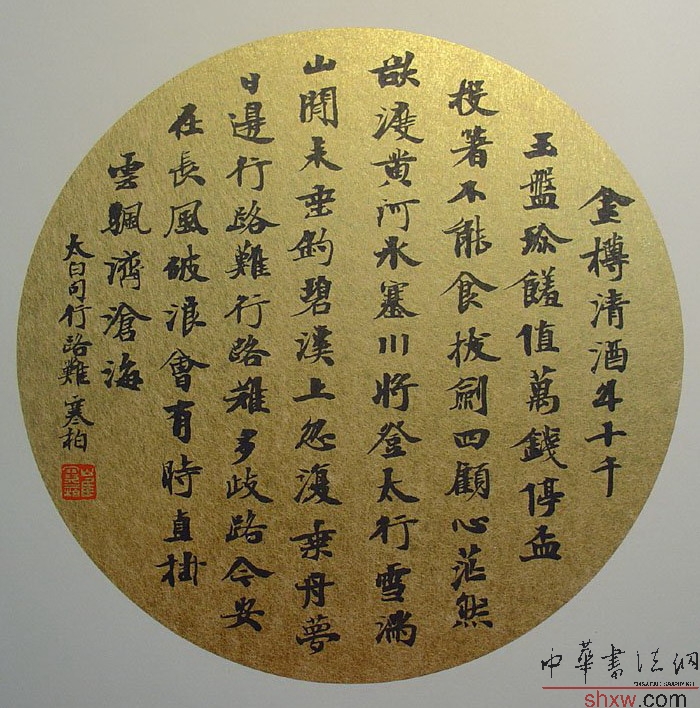 金樽清酒斗十千
玉盤珍饈值萬錢停盃
投著不能食拔劍四顧心茫然
欲渡黄河冰塞川將登太行雪滿
山閒来垂釣碧溪上忽復乗舟夢
日邊行路難行路難多歧路今安
在長風破浪會有時直掛
雲颿濟滄海
太白句行路難 寒柏
中華書法網
shxw.com